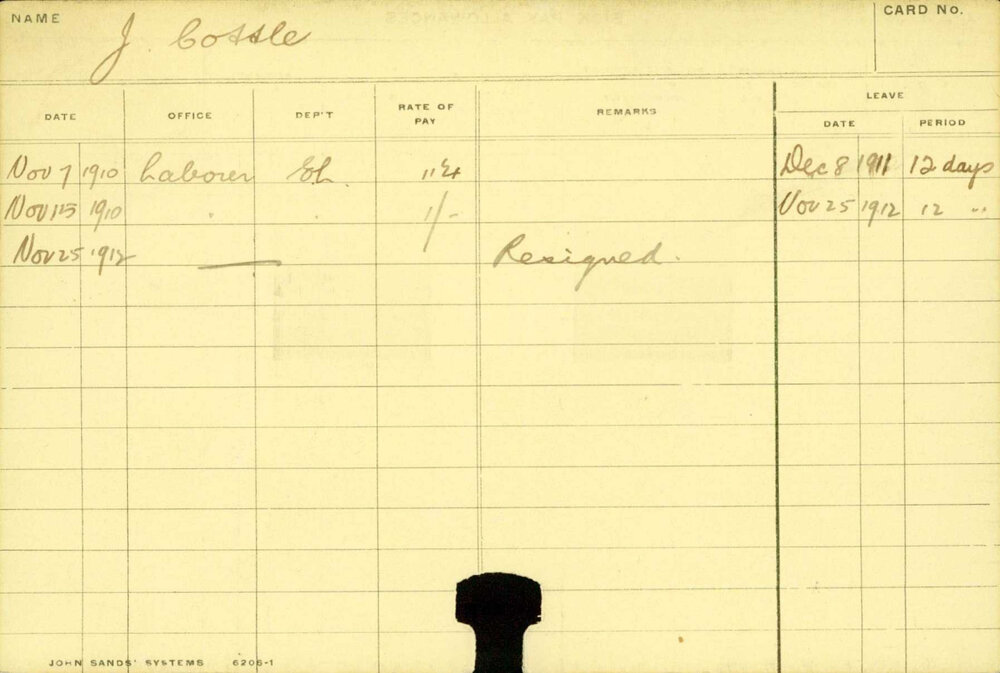 NAME J. Cottle CARD No.
LEAVE
DATE OFFICE DEP'T RATE OF PAY REMARKS DATE PERIOD
Nov 7 1910 Laborer Dec 8 1911 12 days
Nov 15 1910 " " 1/- Nov 25 1912 12 "
Nov 25 1912 — Resigned.
JOHN SANDS' SYSTEMS 6206-1